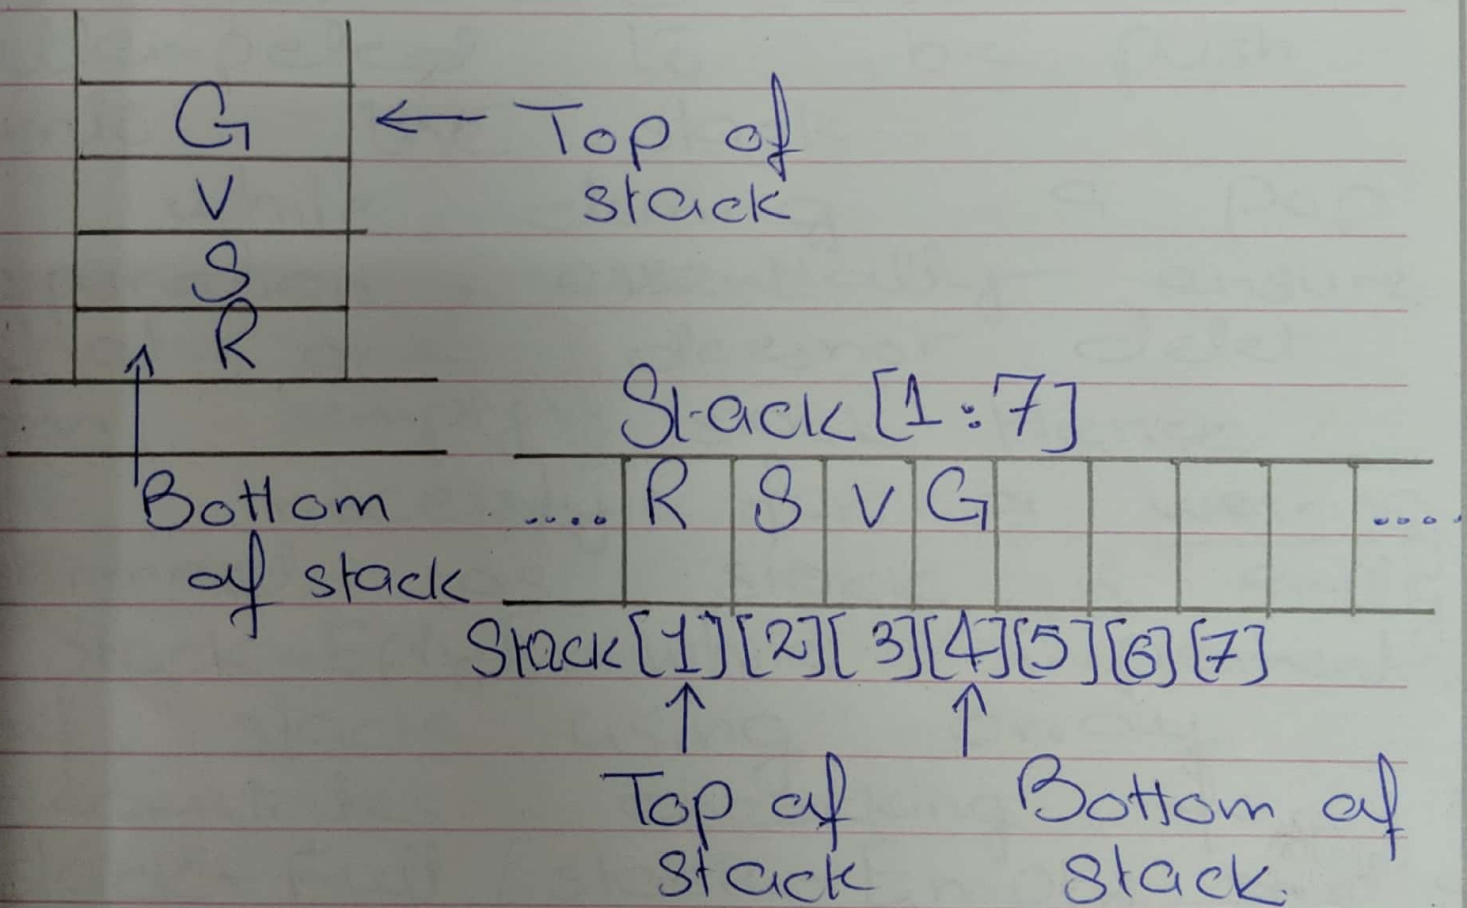 G ← Top of
stack
V
S
R
Bottom
of stack
Stack [1:7]
.... R S V G ....
Stack [1] [2] [3] [4] [5] [6] [7]
↑ ↑
Top of Bottom of
stack stack.